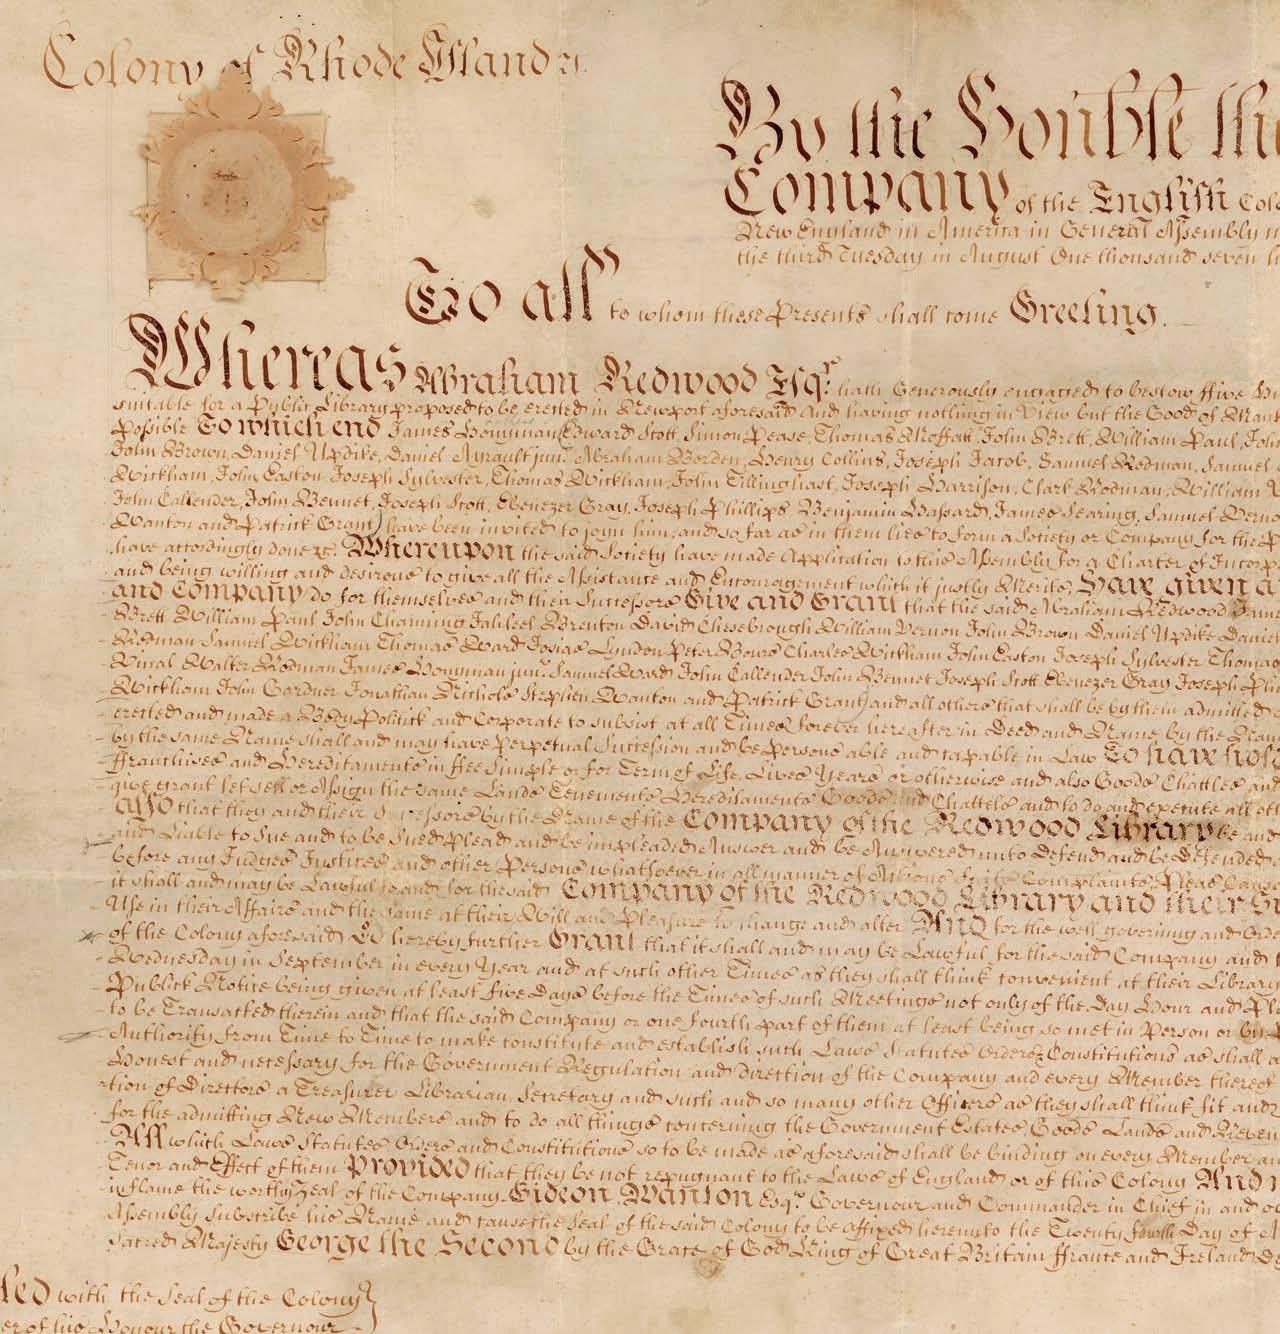 Colony of Rhode Island &c.
By the Honble the
Company of the English Colo
New England in America in General Assembly
the third Tuesday in August One thousand seven
To all to whom these Presents shall come Greeting.
Whereas Abraham Redwood Esqr. hath Generously engaged to bestow ffive Hu
suitable for a Public Library proposed to be erected in Newport aforesaid And having nothing in View but the Good of Mank
possible To which end James Honyman Edward Scott, Simon Pease, Thomas Moffatt, John Brett, William Paul, John
John Brown, Daniel Updike, Daniel Ayrault junr. Abraham Borden, Henry Collins, Joseph Jacob, Samuel Rodman, Samuel
Wickham, John Easton, Joseph Sylvester, Thomas Wickham, John Tillinghast, Joseph Harrison, Clark Rodman, William V
John Callender, John Bennet, Joseph Scott, Ebenezer Gray, Joseph Phillips Benjamin Hassard, James Searing, Samuel Verno
Wanton and Patrick Grant) have been invited to joyn him, and so far as in them lies to form a Society or Company for the P
have accordingly done &c. Whereupon the said Society have made Application to this Assembly for a Charter of Incorp
and being willing and desirous to give all the Assistance and Encouragement which it justly Merits, Have given a
and Company do for themselves and their Successors Give and Grant that the said Abraham Redwood Jame
Brett William Paul John Channing Jahleel Brenton David Chesebrough William Vernon John Brown Daniel Updike Daniel
Rodman Samuel Wickham Thomas Ward Josias Lyndon Peter Bours Charles Wickham John Easton Joseph Sylvester Thomas
Vinal Walter Rodman James Honyman junr. Samuel Ward John Callender John Bennet Joseph Scott Ebenezer Gray Joseph Phil
Wickham John Gardner Jonathan Nichols Stephen Wanton and Patrick Grant) and all others that shall be by them admitted
erected and made a Body Politick and Corporate to subsist at all Times forever hereafter in Deed and Name by the Nam
by the same Name shall and may have Perpetual Succession and be persons able and capable in Law To have hold
ffranchises and Hereditaments in ffee Simple or for Term of Life, Lives Years or otherwise and also Goods Chattles and
give grant let sell or Assign the same Lands Tenements Hereditaments Goods and Chattels and to do and execute all oth
also that they and their Successors by the Name of the Company of the Redwood Library be and
and Liable to Sue and to be Sued Plead and be impleaded Answer and be Answered unto Defend and be Defended
before any Judges Justices and other Persons whatsoever in all manner of Actions Suits Complaints, Pleas Cause
it shall and may be Lawful to and for the said Company of the Redwood Library and their Su
Use in their Affairs and the same at their Will and Pleasure to change and alter And for the well governing and Orde
of the Colony aforesaid Do hereby further Grant that it shall and may be Lawful for the said Company and
Wednesday in September in every Year and at such other Times as they shall think convenient at their Library
Publick Notice being given at least five Days before the Times of such Meetings not only of the Day Hour and Pla
to be Transacted therein and that the said Company or one fourth part of them at least being so met in Person or by P
Authority from Time to Time to make constitute and establish such Laws Statutes Orders & Constitutions as shall a
Honest and necessary for the Government Regulation and Direction of the Company and every Member thereof
tion of Directors a Treasurer Librarian, Secretary and such and so many other Officers as they shall think fit and
for the admitting New Members and to do all things concerning the Government Estates, Goods Lands and Reven
All which Laws Statutes Orders and Constitutions so to be made as aforesaid shall be binding on every Member an
Tenor and Effect of them Provided that they be not repugnant to the Laws of England or of this Colony And
inflame the worthy Zeal of the Company Gideon Wanton Esqr. Governour and Commander in Chief in and o
Assembly Subscribe his Name and cause the Seal of the said Colony to be affixed hereunto the Twenty Day of A
Sacred Majesty George the Second by the Grace of God King of Great Britain ffrance and Ireland De
led with the Seal of the Colony
er of his Honour the Governour